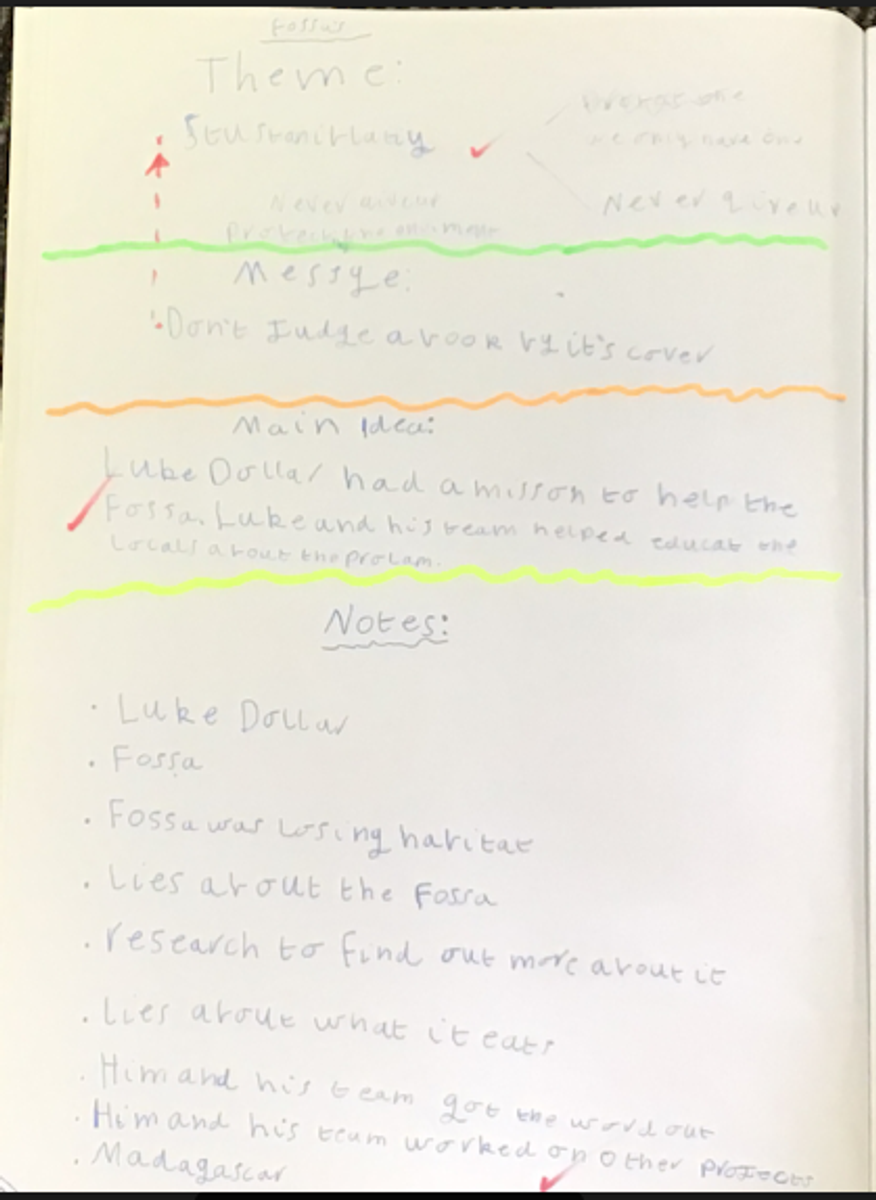 Fossa's
Theme:
we only have one
Never giveup
Never giveup
Messge:
Don't Judge a book by it's cover
Main Idea:
Luke Dollar had a misson to help the
Fossa. Luke and his team helped educat the
Locals about the problam.
Notes:
· Luke Dollar
· Fossa
· Fossa was Losing habitat
· Lies about the Fossa
· research to find out more about it
· Lies about what it eats
· Him and his team got the word out
· Him and his team worked on other projects
· Madagascar